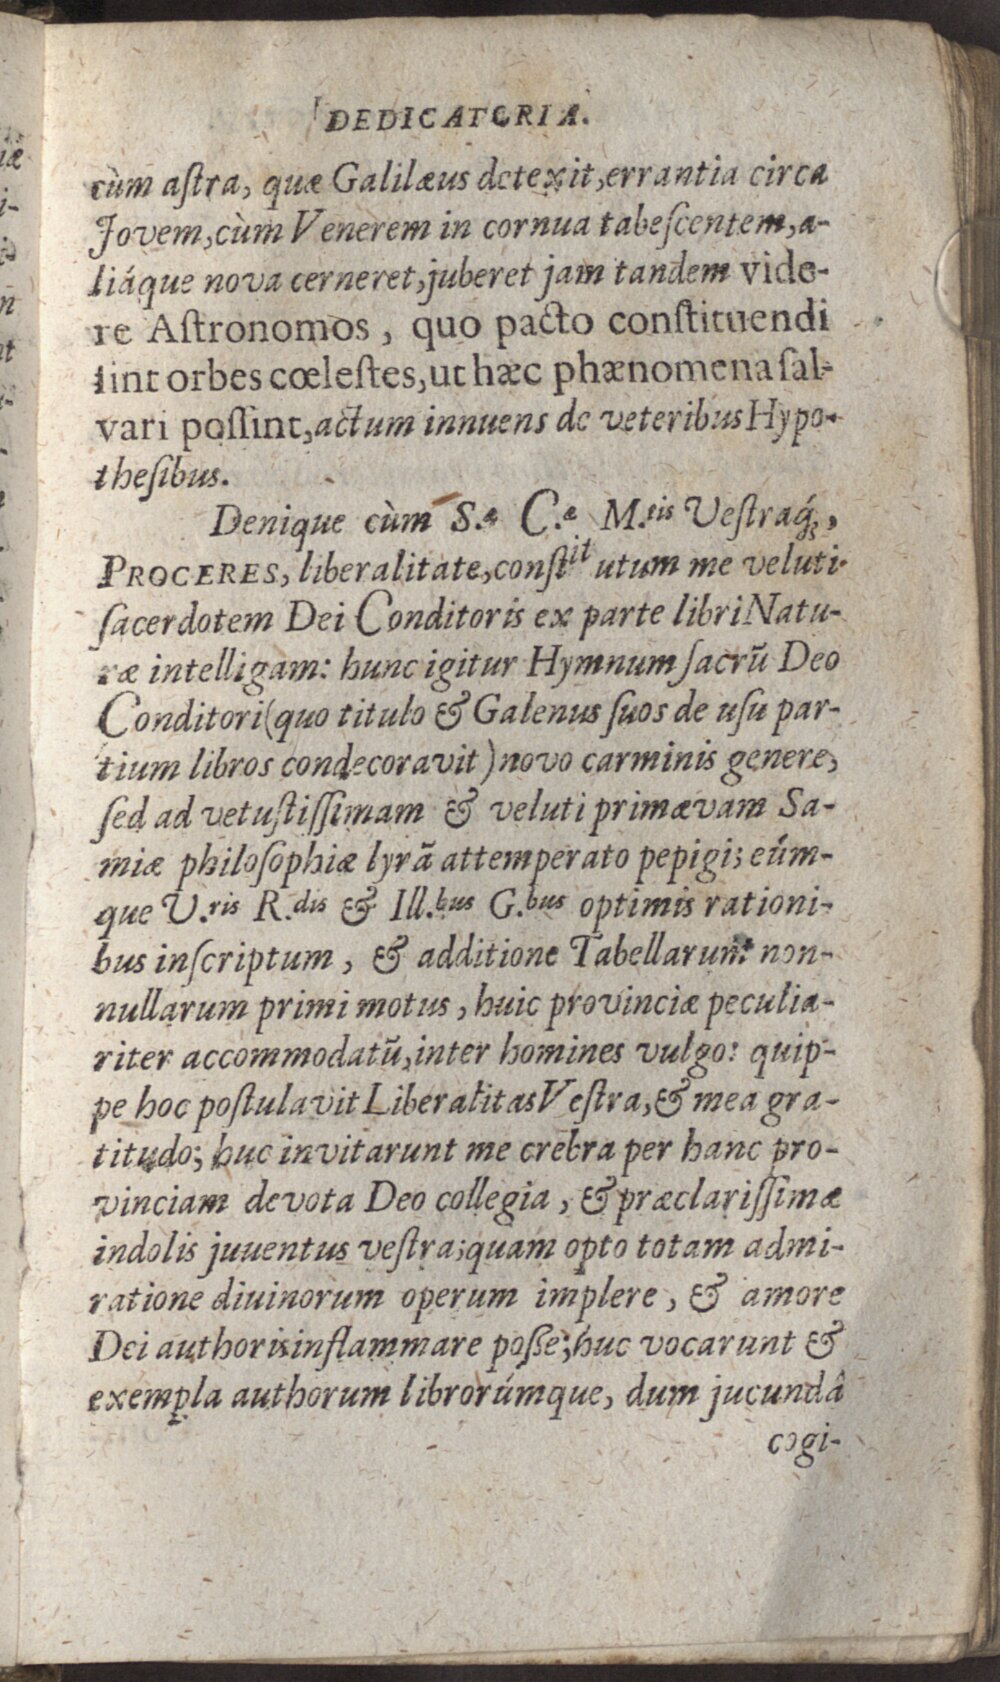 DEDICATORIA.
cùm aſtra, quæ Galilæus detexit, errantia circa
Jovem, cùm Venerem in cornua tabeſcentem, a-
liáque nova cerneret, juberet jam tandem vide-
re Aſtronomos, quo pacto conſtituendi
ſint orbes cœleſtes, ut hæc phænomena ſal-
vari poſſint, actum innuens de veteribus Hypo-
theſibus.
Denique cùm S.æ C.æ M.tis Veſtraq́;,
PROCERES, liberalitate, conſtitutum me veluti
ſacerdotem Dei Conditoris ex parte libri Natu-
ræ intelligam: hunc igitur Hymnum ſacrũ Deo
Conditori (quo titulo & Galenus ſuos de uſu par-
tium libros condecoravit) novo carminis genere,
ſed ad vetuſtiſſimam & veluti primævam Sa-
miæ philoſophiæ lyrã attemperato pepigi; eúm-
que V.ris R.dis & Ill.bus G.bus optimis rationi-
bus inſcriptum, & additione Tabellarum non-
nullarum primi motus, huic provinciæ peculia-
riter accommodatũ, inter homines vulgo: quip-
pe hoc poſtulavit Liberalitas Veſtra, & mea gra-
titudo; huc invitarunt me crebra per hanc pro-
vinciam devota Deo collegia, & præclariſſimæ
indolis juuentus veſtra; quam opto totam admi-
ratione diuinorum operum implere, & amore
Dei authoris inflammare poſſe; huc vocarunt &
exempla authorum librorúmque, dum jucundâ
cogi-